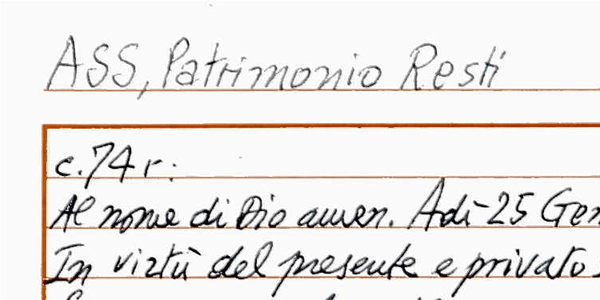 ASS, Patrimonio Resti
c. 74 r:
Al nome di Dio amen. Adì 25 Gen
In virtù del presente e privato